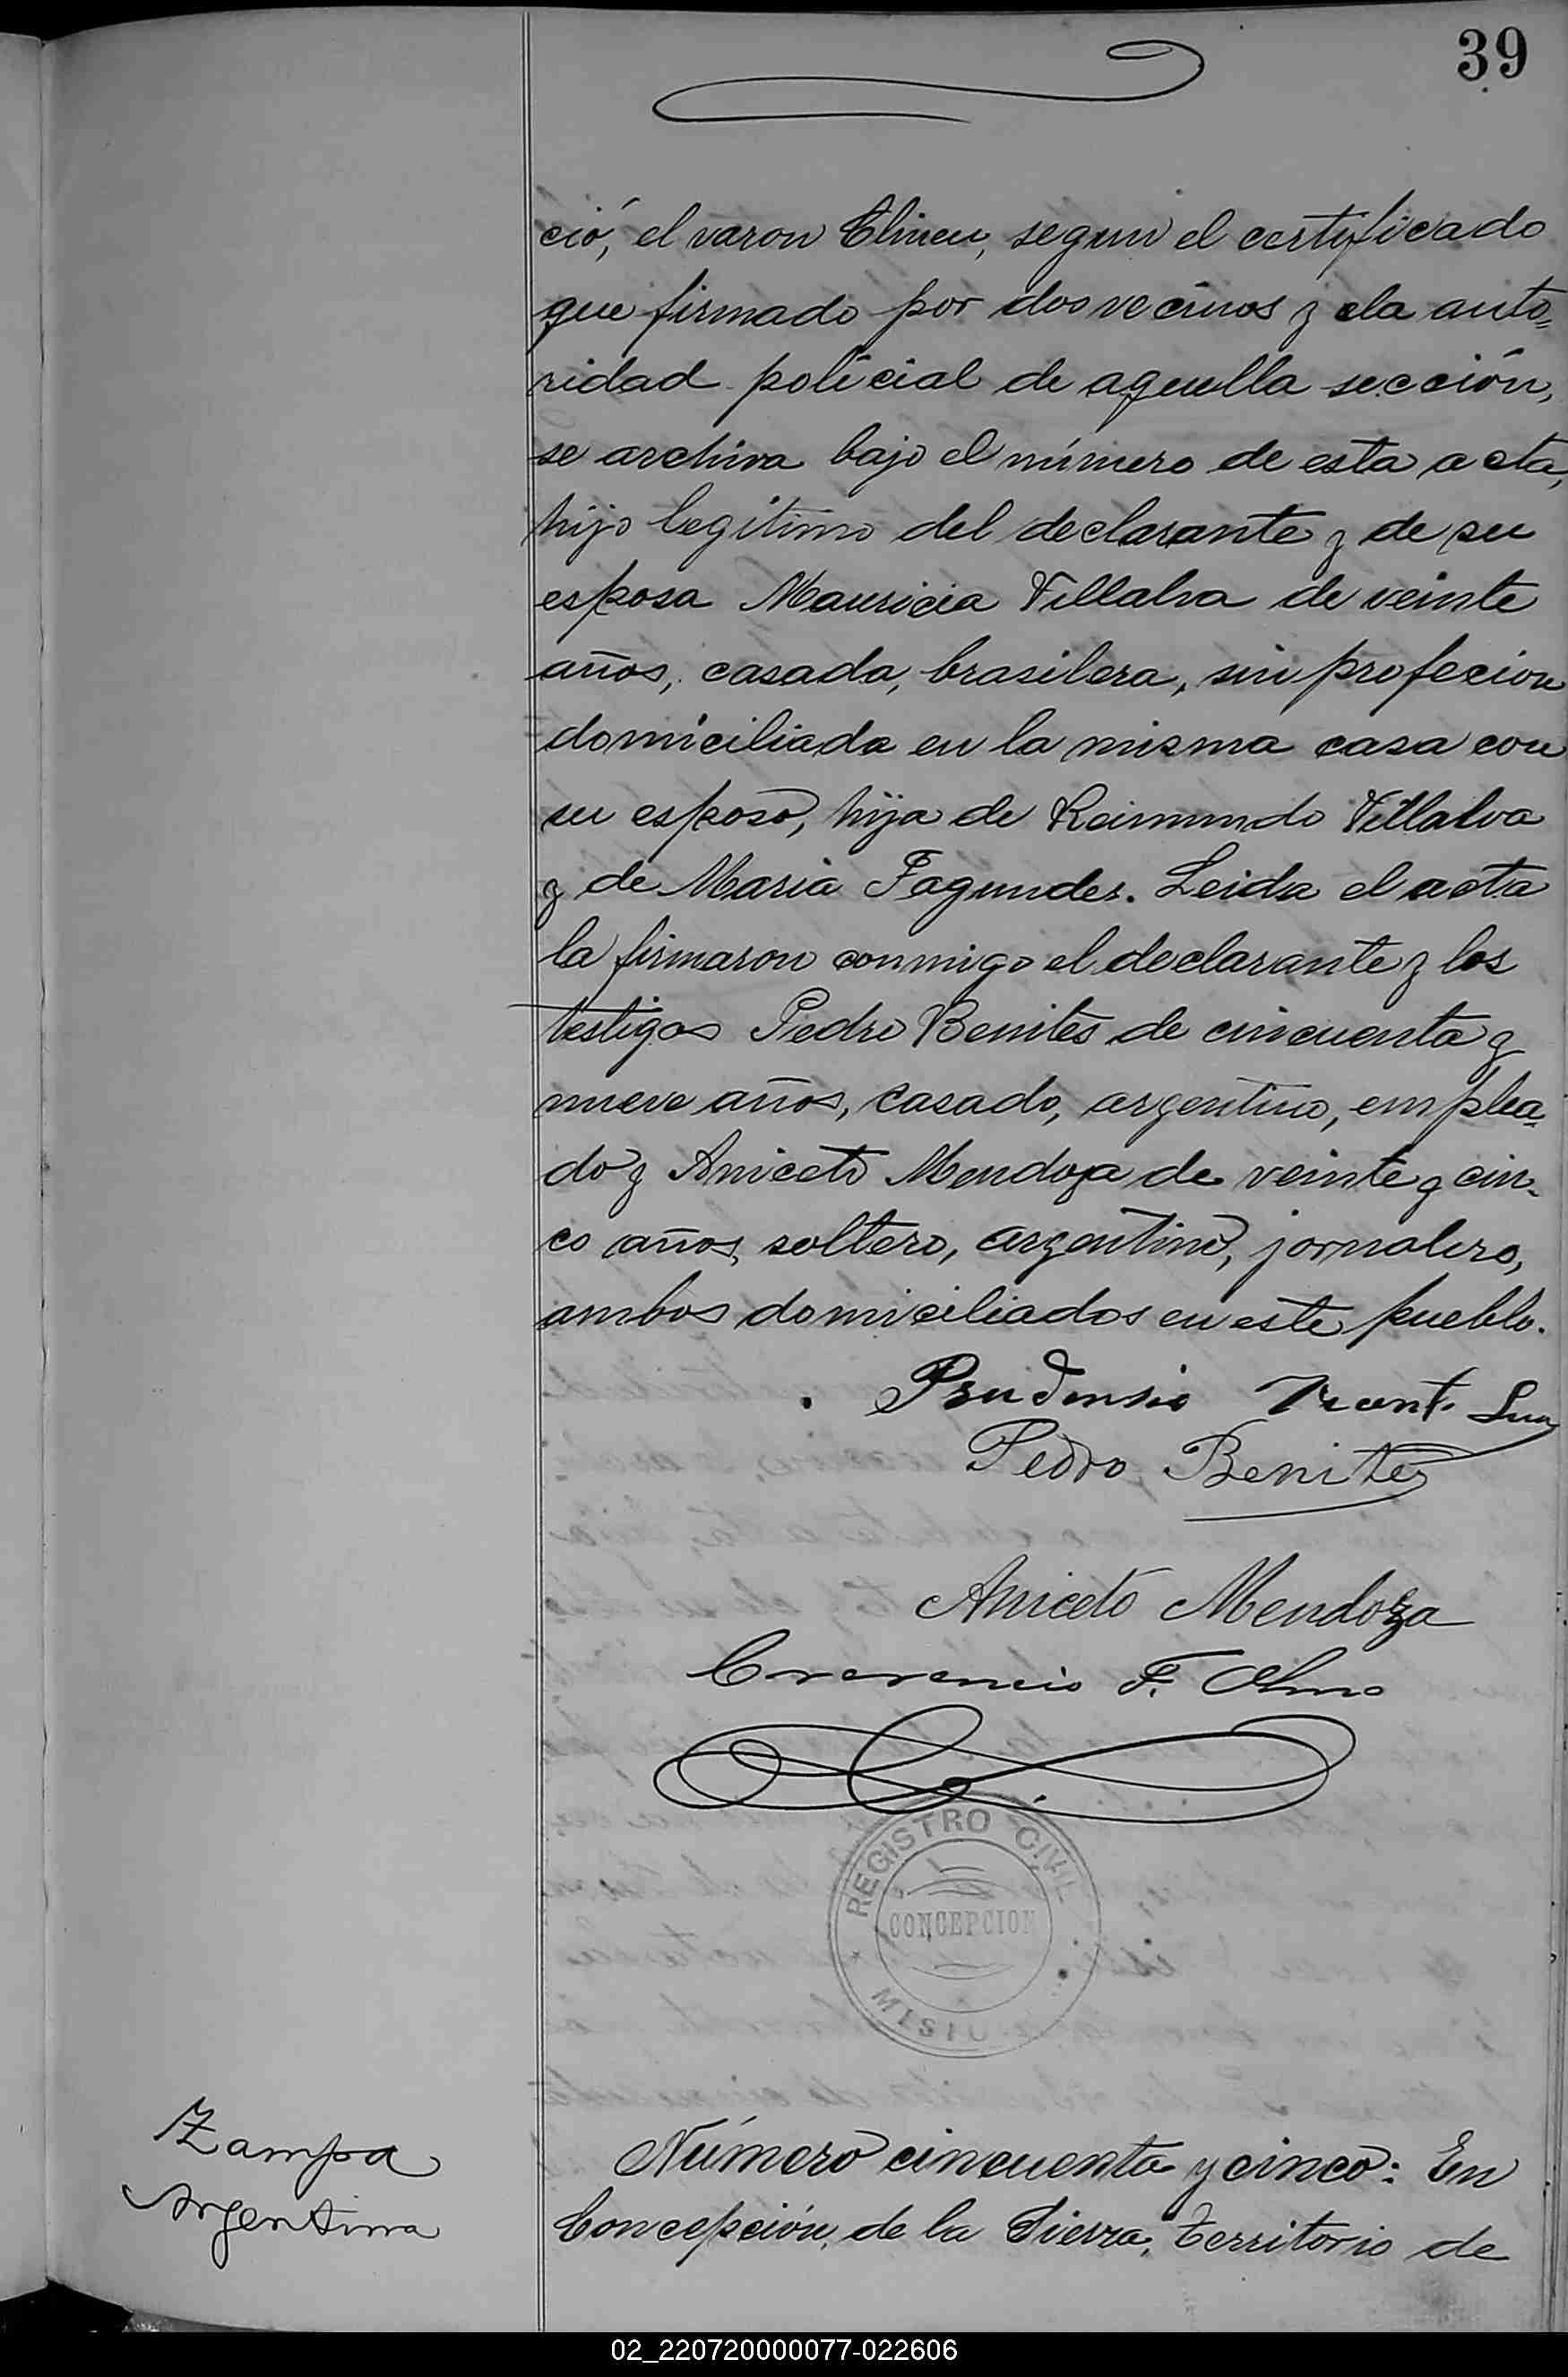 39
ció, el varon segun el certificado
que firmado por dos vecinos y la auto=
ridad policial de aquella sección,
se archiva bajo el número de esta acta,
hijo legitimo del declarante y de su
esposa Mauricia Villalva de veinte
años, casada, brasilera, sin profecion
domiciliada en la misma casa con
su esposo, hija de Reimundo Villalva
y de Maria Fagundes. Leida el acta
la firmaron conmigo el declarante y los
testigos Pedro Benites de cincuenta y
nueve años, casado, argentino, emplea-
do y Aniceto Mendoza de veinte y cin-
co años, soltero, argentino, jornalero,
ambos domiciliados en este pueblo.
Prudensio
Pedro Benites
Aniceto Mendoza
F. Olmo
REGISTRO CIVIL
CONCEPCION
Zampa
Argentina
Número cincuenta y cinco: En
Concepción de la Sierra, Territorio de
02_220720000077-022606